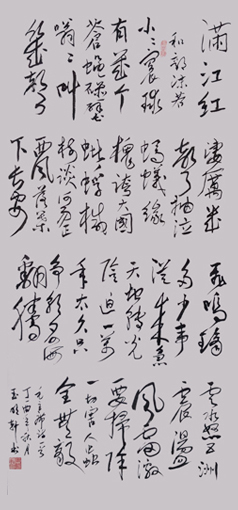 满江红
和郭沫若
小小寰球
有几个
苍蝇碰壁
嗡嗡叫
几声
凄厉几
声抽泣
蚂蚁缘
槐誇大國
蚍蜉撼
树谈何易正
西风落葉
下长安
飞鸣镝
多少事
從来急
天地转光
陰迫一萬
年太久只
争朝夕四海
翻腾
云水怒五洲
震盪
风雷激
要掃除
一切害人蟲
全無敵
毛主席词
丁酉秋月